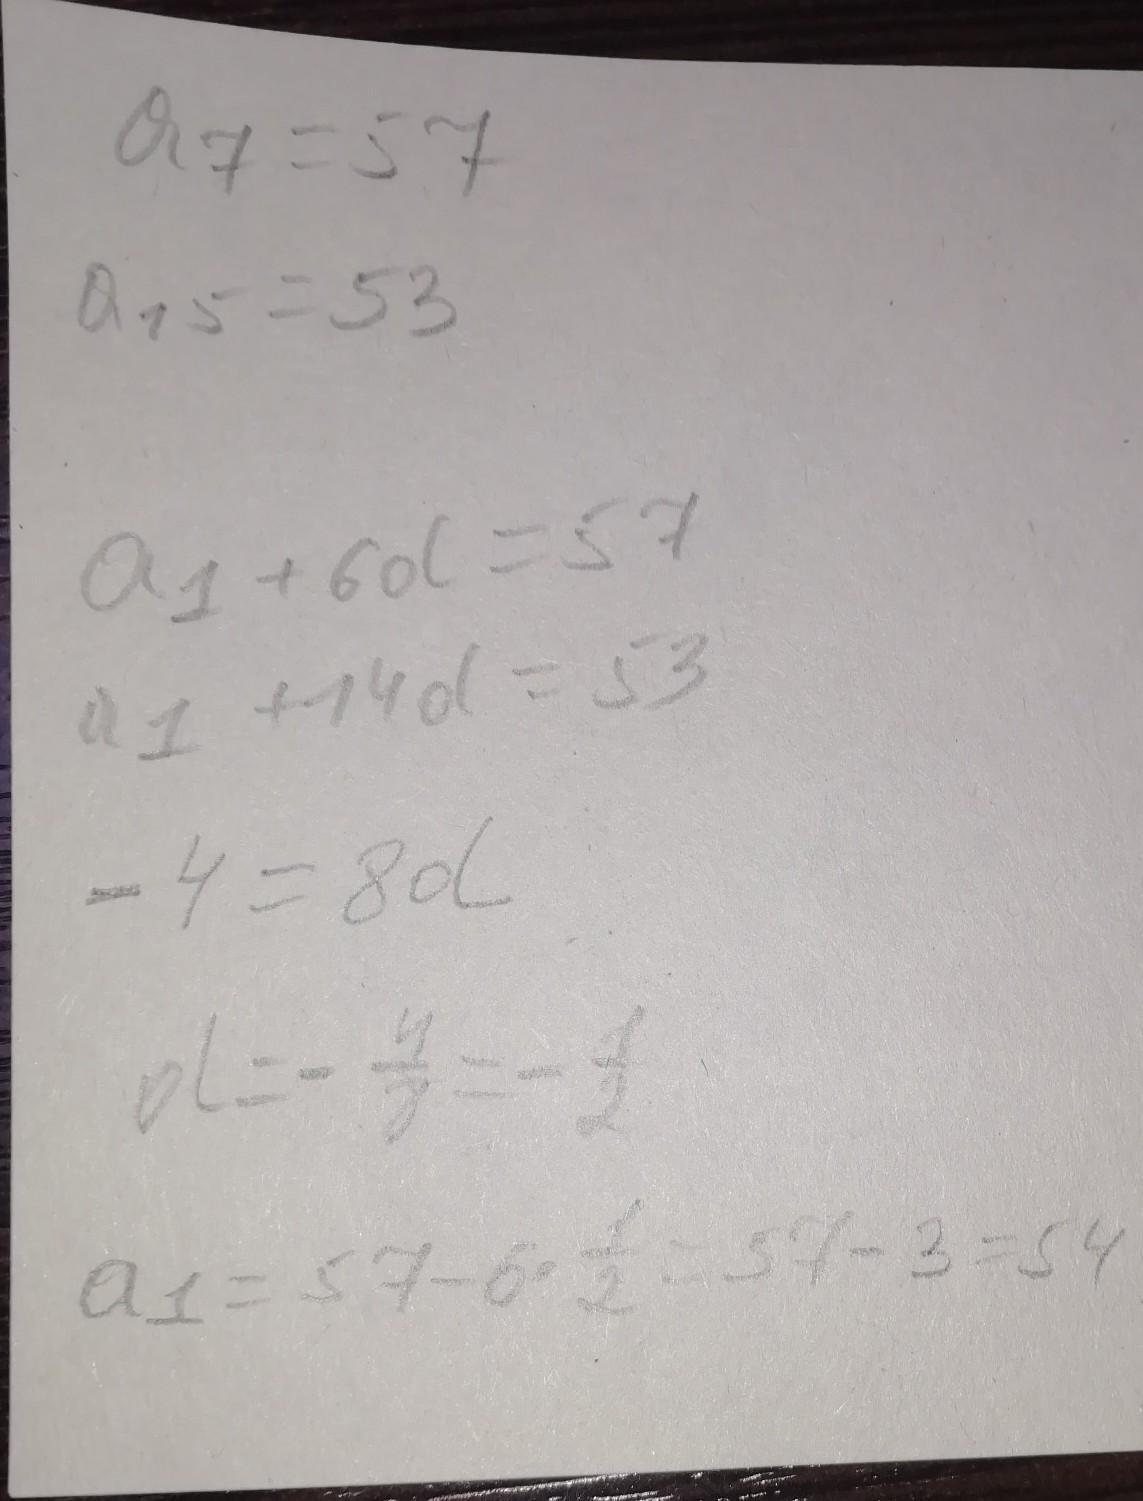 a7 = 57
a15 = 53
a1 + 6d = 57
a1 + 14d = 53
- 4 = 8d
d = - 4/8 = - 1/2
a1 = 57 - 6 · 1/2 = 57 - 3 = 54